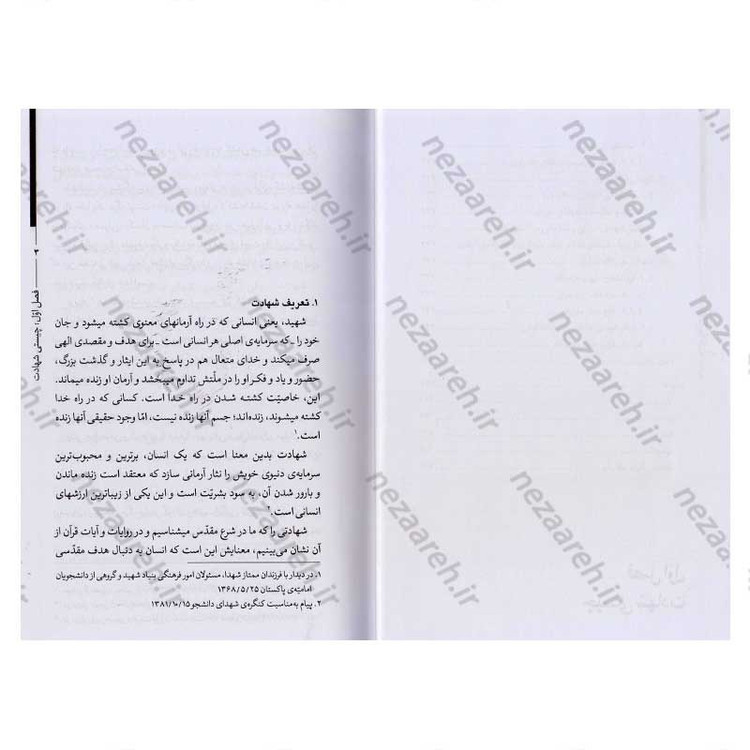 فصل اوّل؛ چیستی شهادت
۱. تعریف شهادت
شهید، یعنی انسانی که در راه آرمانهای معنوی کشته میشود و جان
خود را ـ که سرمایه‌ی اصلی هر انسانی است ـ برای هدف و مقصدی الهی
صرف میکند و خدای متعال هم در پاسخ به این ایثار و گذشت بزرگ،
حضور و یاد و فکر او را در ملّتش تداوم میبخشد و آرمان او زنده میماند.
این، خاصیّت کشته شدن در راه خدا است. کسانی که در راه خدا
کشته میشوند، زنده‌اند؛ جسم آنها زنده نیست، امّا وجود حقیقی آنها زنده
است.۱
شهادت بدین معنا است که یک انسان، برترین و محبوب‌ترین
سرمایه‌ی دنیوی خویش را نثار آرمانی سازد که معتقد است زنده ماندن
و بارور شدن آن، به سود بشریّت است و این یکی از زیباترین ارزشهای
انسانی است.۲
شهادتی را که ما در شرع مقدّس میشناسیم و در روایات و آیات قرآن از
آن نشان می‌بینیم، معنایش این است که انسان به دنبال هدف مقدّسی
۱. در دیدار با فرزندان ممتاز شهدا، مسئولان امور فرهنگی بنیاد شهید و گروهی از دانشجویان
امامیّه‌ی پاکستان ۱۳۶۸/۵/۲۵
۲. پیام به‌مناسبت کنگره‌ی شهدای دانشجو ۱۳۸۱/۱۰/۱۵
فصل اول
چیستی شهادت
nezaareh.ir
nezaareh.ir
nezaareh.ir
nezaareh.ir
nezaareh.ir
nezaareh.ir
nezaareh.ir
nezaareh.ir
nezaareh.ir